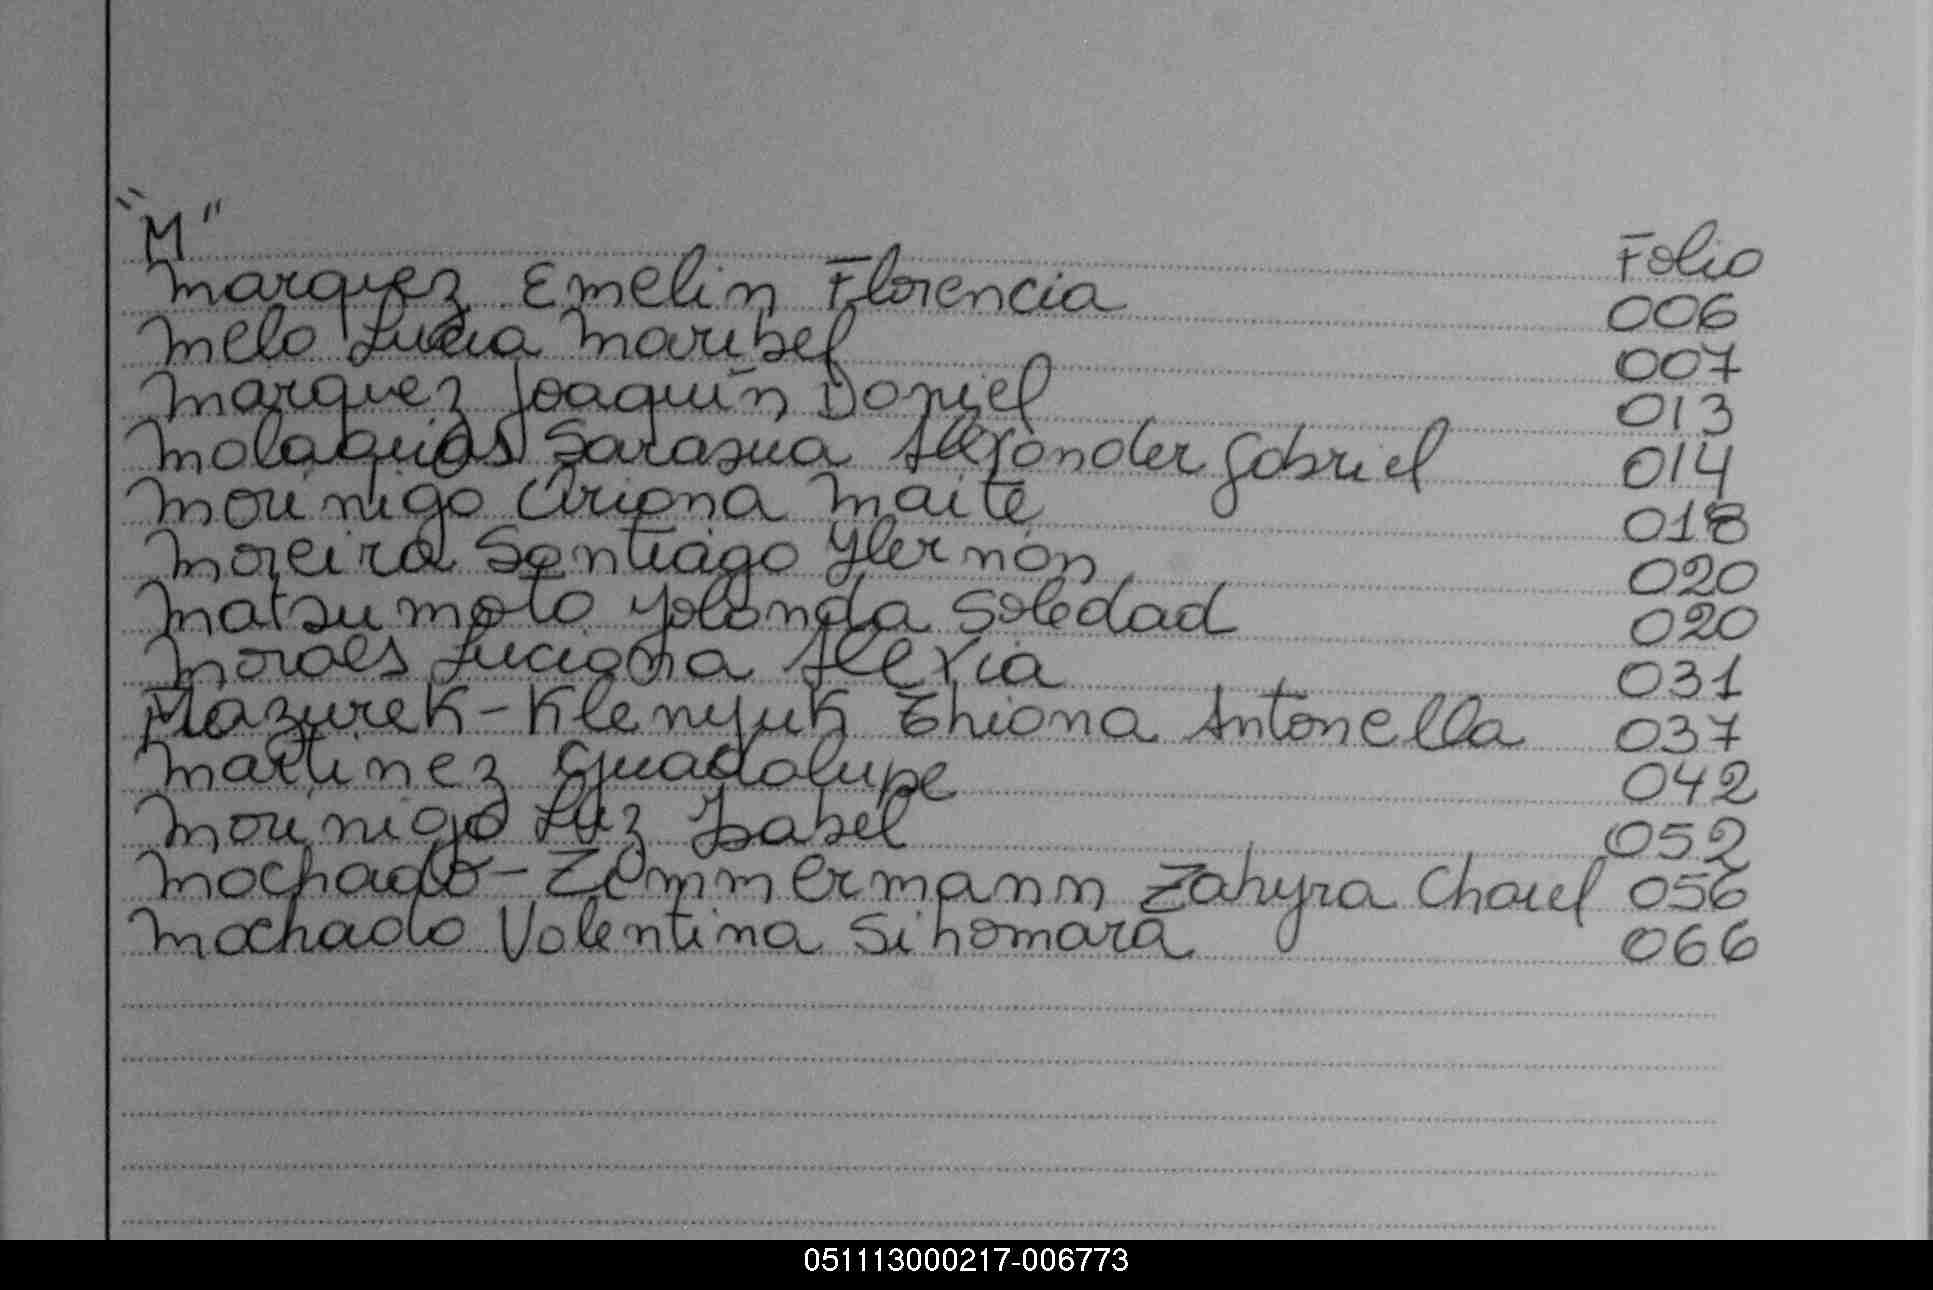 "M"
Folio
Marquez Emelin Florencia 006
Melo Lucia Maribel 007
Marquez Joaquín Daniel 013
Malaquias Sarasua Alexander Gabriel 014
Morinigo Oriana Maite 018
Moreira Santiago Hernán 020
Matsumoto Yolanda Soledad 020
Moraes Luciana Alexia 031
Mazurek-Klenyuk Thiana Antonella 037
Martinez Guadalupe 042
Morinigo Luz Isabel 052
Machado-Zemmermann Zahyra Charel 056
Machado Valentina Sihomara 066
051113000217-006773